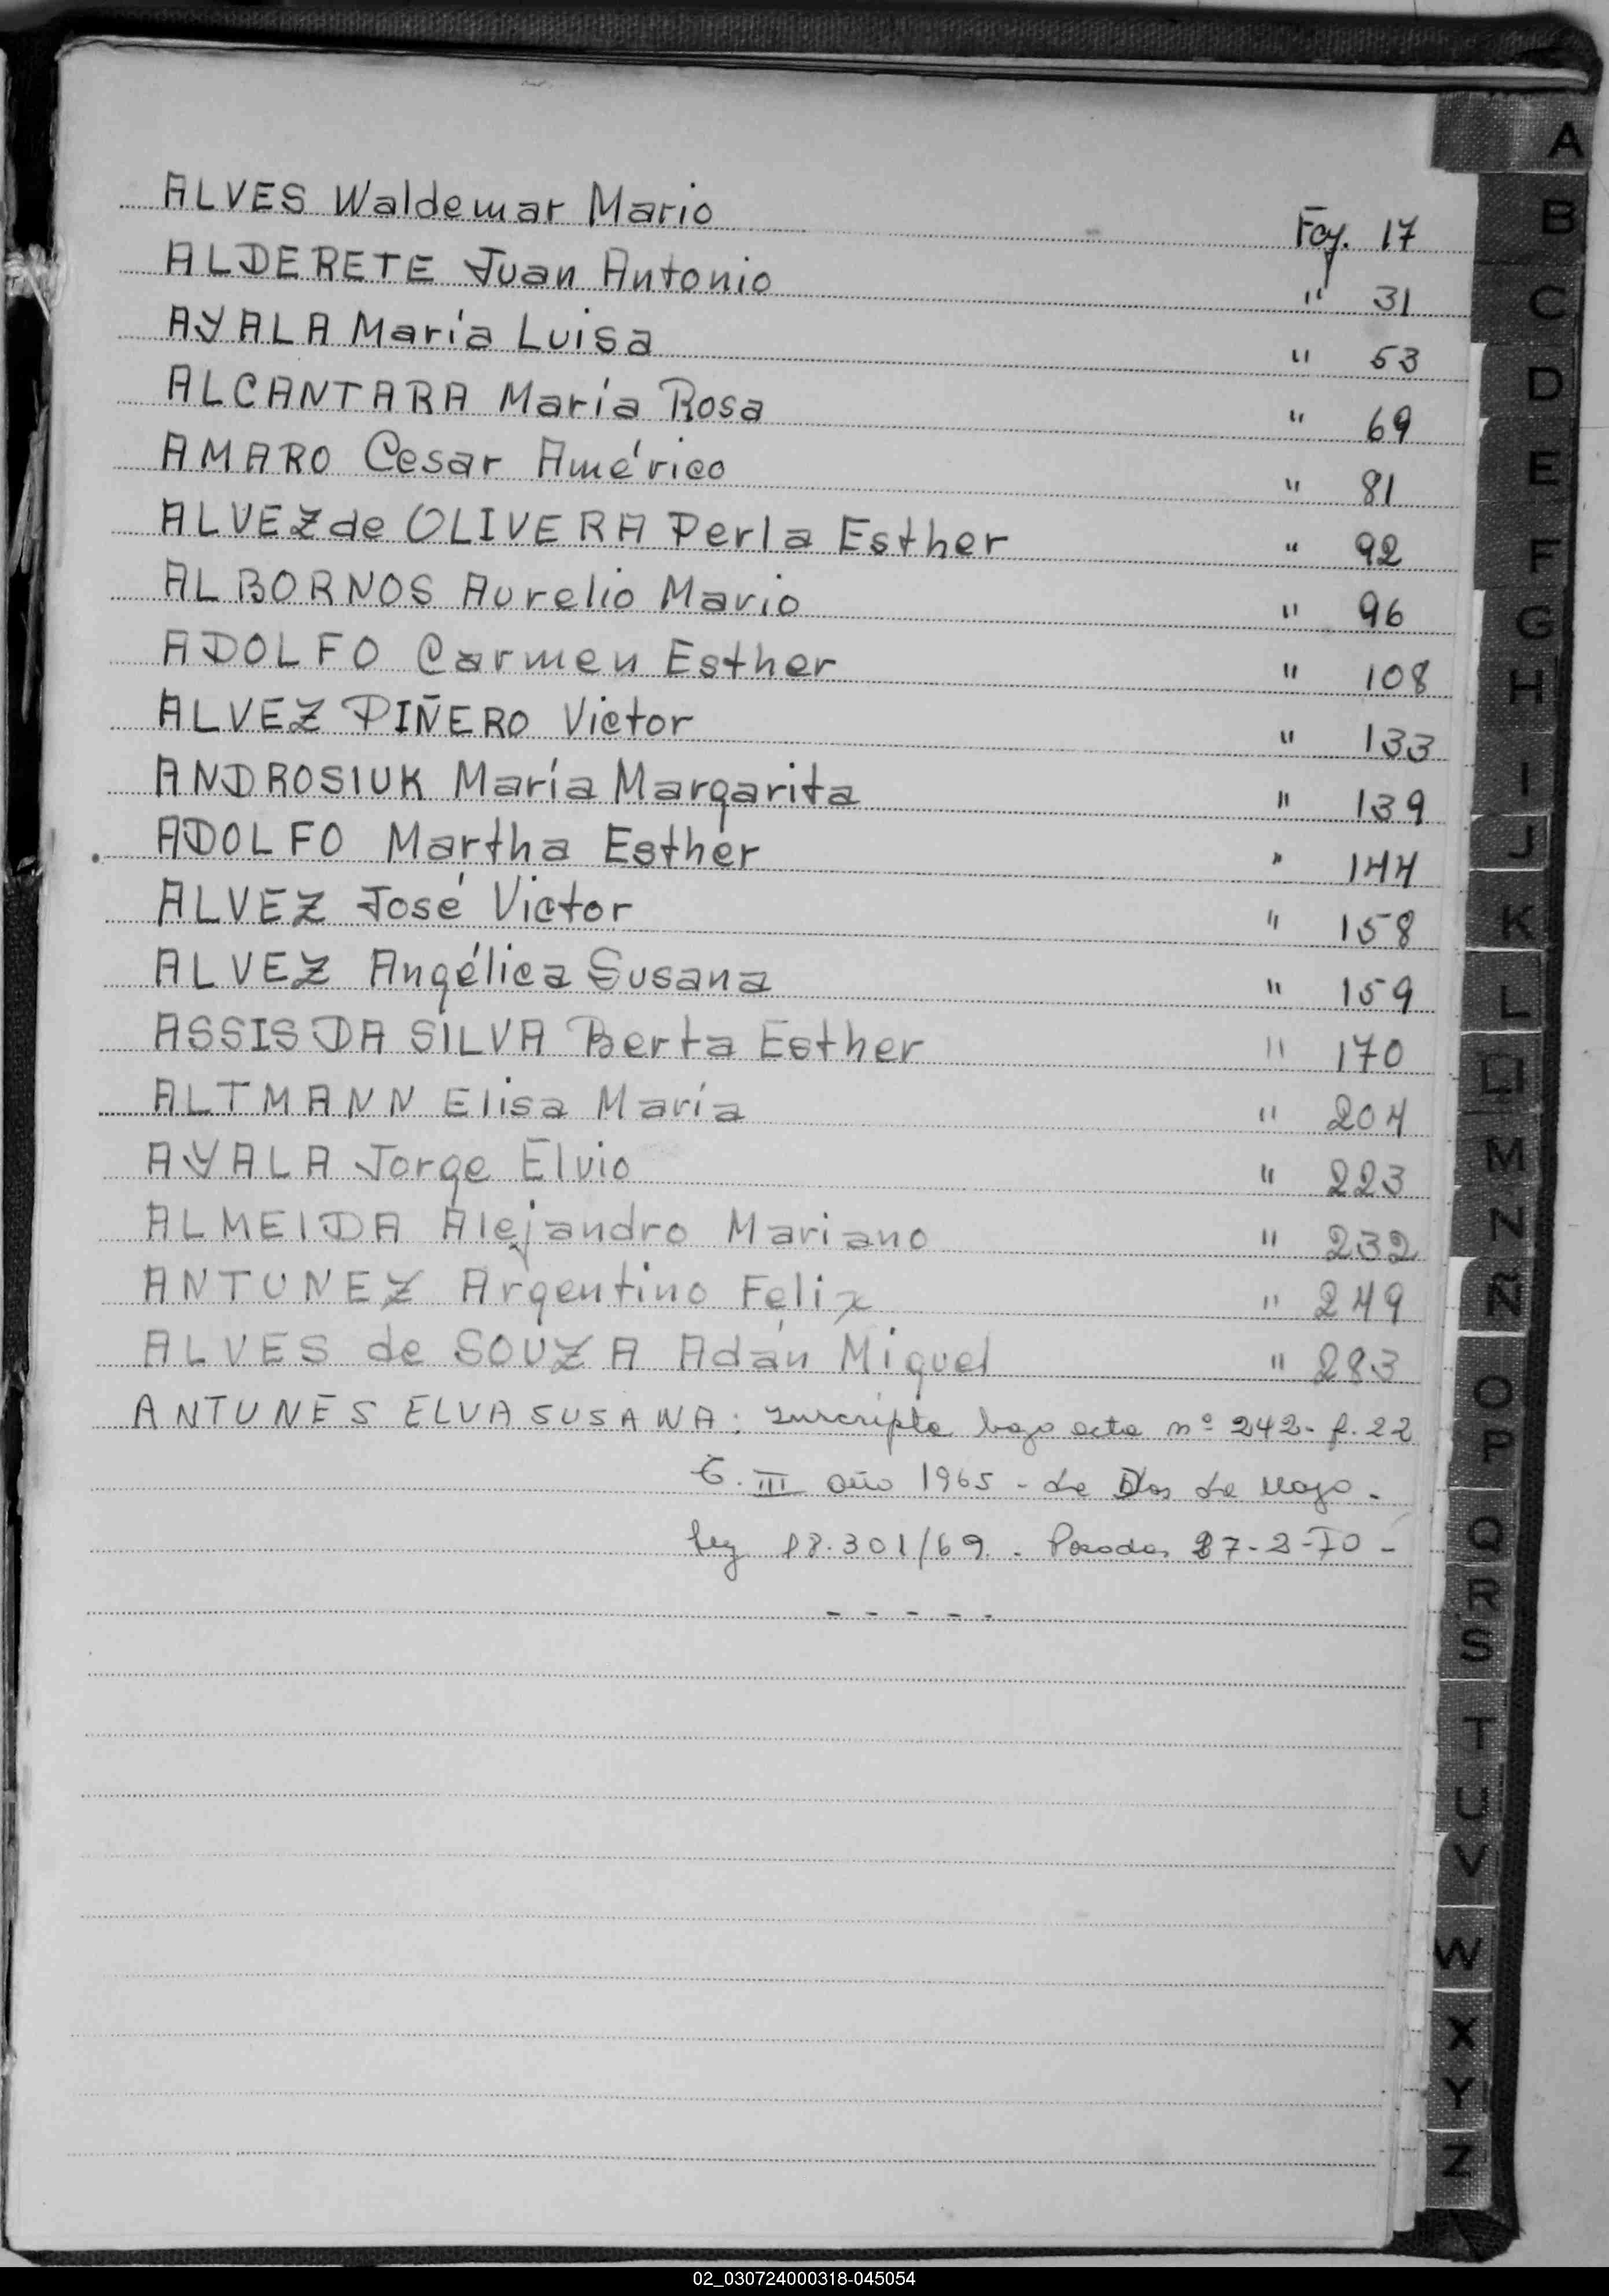 ALVES Waldemar Mario Foj. 17
ALDERETE Juan Antonio " 31
AYALA María Luisa " 53
ALCANTARA María Rosa " 69
AMARO Cesar Américo " 81
ALVEZ de OLIVERA Perla Esther " 92
ALBORNOS Aurelio Mario " 96
ADOLFO Carmen Esther " 108
ALVEZ PIÑERO Victor " 133
ANDROSIUK María Margarita " 139
ADOLFO Martha Esther " 144
ALVEZ José Victor " 158
ALVEZ Angélica Susana " 159
ASSIS DA SILVA Berta Esther " 170
ALTMANN Elisa María " 204
AYALA Jorge Elvio " 223
ALMEIDA Alejandro Mariano " 232
ANTUNEZ Argentino Felix " 249
ALVES de SOUZA Adán Miguel " 283
ANTUNES ELVA SUSANA: Inscripta bajo acta nº 242- f. 22
T. III año 1965 - de Dos de Mayo -
ley 18.301/69 - Posadas 27-2-70 -
- - - - -
A
B
C
D
E
F
G
H
I
J
K
L
LL
M
N
Ñ
O
P
Q
R
S
T
U
V
W
X
Y
Z
02_030724000318-045054